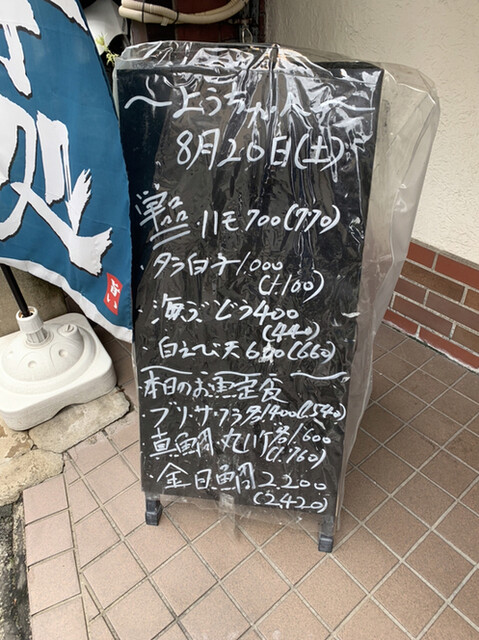 処
旨い
〜ようちゃん〜
8月20日(土)
単品
・ハモ700(770)
・タラ白子1.000
(1.100)
・海ぶどう400
(440)
・白えび天600(660)
本日のお魚定食
・ブリ、サワラ各1400(1.540)
・真鯛、丸ハゲ各1600
(1.760)
・金目鯛2.200
(2.420)